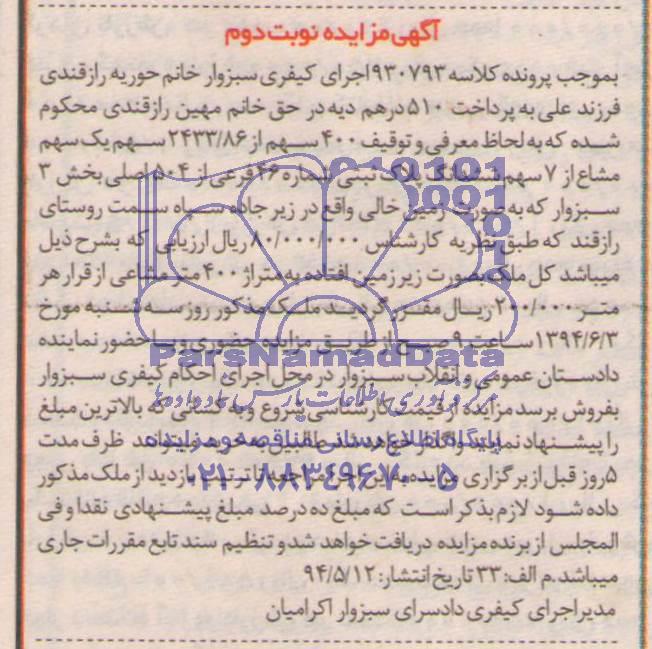 آگهی مزایده نوبت دوم
بموجب پرونده کلاسه ۹۳۰۷۹۳ اجرای کیفری سبزوار خانم حوریه رازقندی
فرزند علی به پرداخت ۵۱۰ درهم دیه در حق خانم مهین رازقندی محکوم
شده که به لحاظ معرفی و توقیف ۴۰۰ سهم از ۲۴۳۳/۸۶ سهم یک سهم
مشاع از ۷ سهم ششدانگ پلاک ثبتی شماره ۴۶ فرعی از ۵۰۴ اصلی بخش ۳
سبزوار که به صورت زمین خالی واقع در زیر جاده سیاه سمت روستای
رازقند که طبق نظریه کارشناس ۸۰/۰۰۰/۰۰۰ ریال ارزیابی که بشرح ذیل
میباشد کل ملک بصورت زیر زمین افتاده به متراژ ۴۰۰ متر مشاعی از قرار هر
متر ۲۰۰/۰۰۰ ریال مقرر گردید ملک مذکور روز سه شنبه مورخ
۱۳۹۴/۶/۳ ساعت ۹ صبح از طریق مزایده حضوری و با حضور نماینده
دادستان عمومی و انقلاب سبزوار در محل اجرای احکام کیفری سبزوار
بفروش برسد مزایده از قیمت کارشناسی شروع و به کسانی که بالاترین مبلغ
را پیشنهاد نمایند واگذار خواهد شد متقاضیان به خرید میتوانند ظرف مدت
۵ روز قبل از برگزاری مزایده به این اجرا مراجعه تا ترتیب بازدید از ملک مذکور
داده شود لازم بذکر است که مبلغ ده درصد مبلغ پیشنهادی نقدا و فی
المجلس از برنده مزایده دریافت خواهد شد و تنظیم سند تابع مقررات جاری
میباشد.م الف: ۳۳ تاریخ انتشار: ۹۴/۵/۱۲
مدیر اجرای کیفری دادسرای سبزوار اکرامیان
ParsNamadData
مرکز فرآوری اطلاعات پارس نماد داده ها
پایگاه اطلاع رسانی مناقصه و مزایده
۰۲۱-۸۸۳۴۹۶۷۰-۵